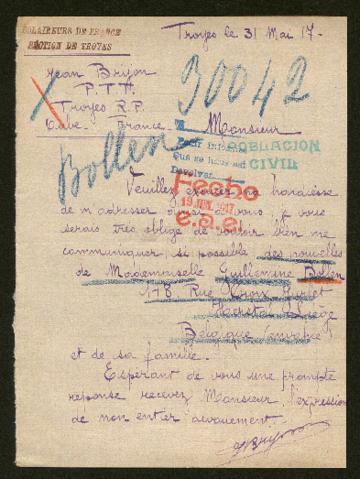 ECLAIREURS DE FRANCE
SECTION DE TROYES
Troyes le 31 Mai 17-
Jean
P.T.T.
Troyes R.P.
Aube. France
30042
Monsieur
Bollen
POBLACION
CIVIL
Que se haya
Devolver
Veuillez excuser ma hardiesse
de m'adresser ainsi à vous, je vous
serais très obligé de vouloir bien me
communiquer, si possible des nouvelles
Fecho
19 JUN. 1917
de Mademoiselle Guillemine Bollen
178 Rue Croix
Herstal Liège
Belgique envahie
et de sa famille.
Espérant de vous une prompte
réponse recevez Monsieur, l'expression
de mon entier dévouement.